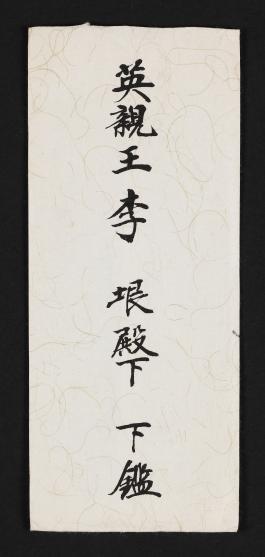 英親王李 垠殿下 下鑑